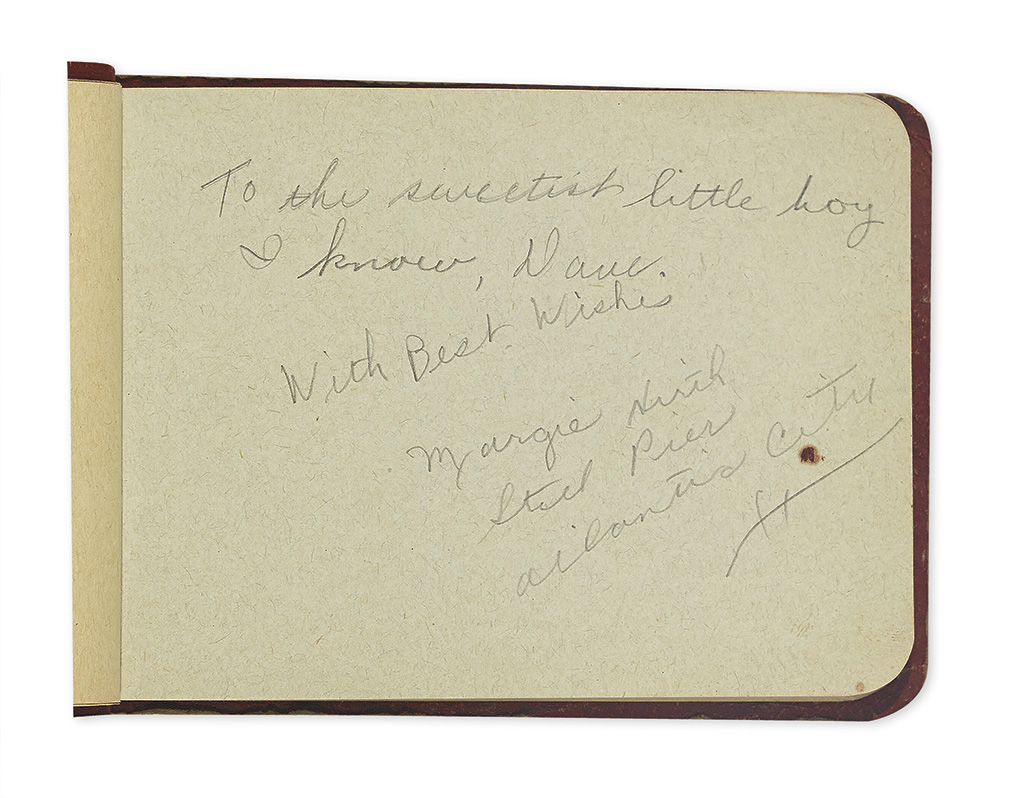 To the sweetist little boy
I know, Dave.
With Best Wishes
Margie
Steel Pier
Atlantic City